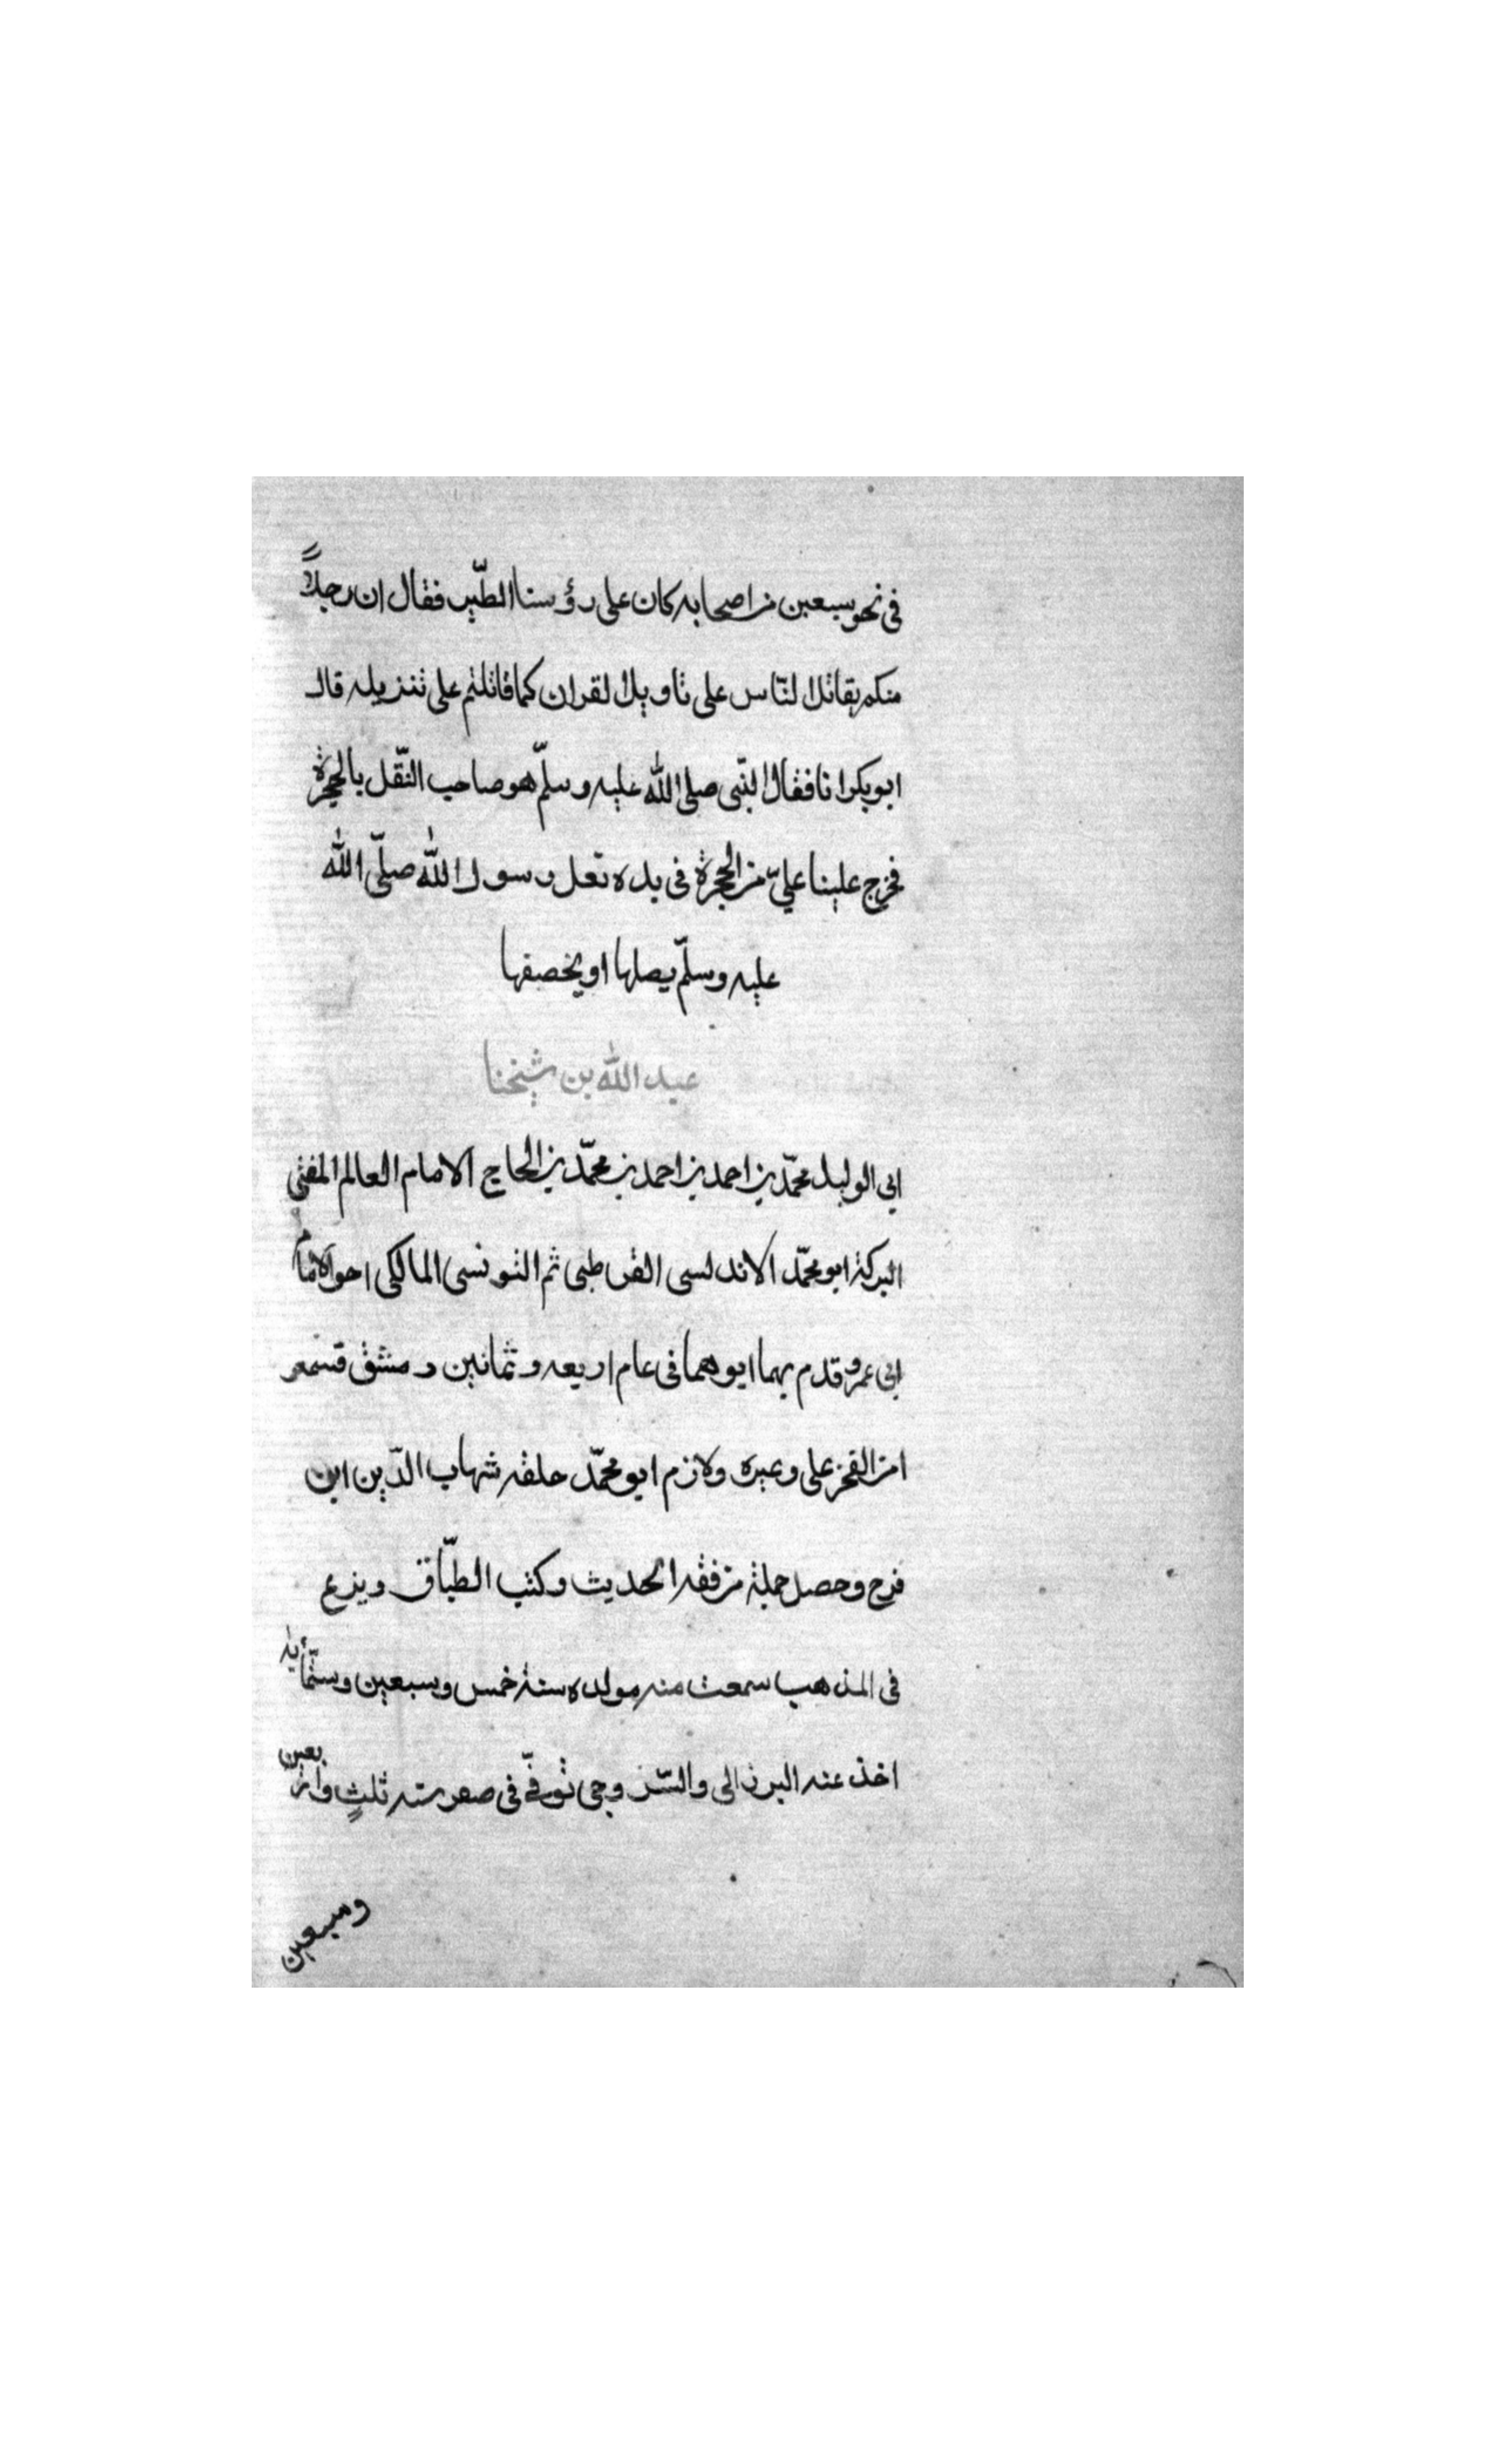 في نحو سبعين من اصحابه كان على رؤسنا الطّير فقال ان رجلاً
منكم يقاتل الناس على تاويل القران كما قاتلتم على تنزيله قال
ابو بكر انا فقال النّبي صلى الله عليه وسلّم هو صاحب النّقل بالحجرة
فخرج علينا عليّ من الحجرة في يده نعل رسول الله صلّى الله
عليه وسلّم يصلها او يخصفها
عبد الله بن شيخنا
ابي الوليد محمّد بن احمد بن احمد بن محمّد بن الحاج الامام العالم المفتي
البركة ابو محمّد الاندلسي القرطبي ثم التونسي المالكي اخو الامام
ابي عمرو قدم بهما ابوهما في عام اربعه وثمانين دمشق فسمعو
امن الفخر علي وغيره ولازم ابو محمّد حلقه شهاب الدّين ابن
فرح وحصل جملة من فقه الحديث وكتب الطبّاق وبزع
في المذهب سمعت منه مولده سنة خمس وسبعين وستّمأية
اخذ عنه البرزالي والسّروجي توفّي في صفر سنه ثلثٍ واربعين
وسبعين